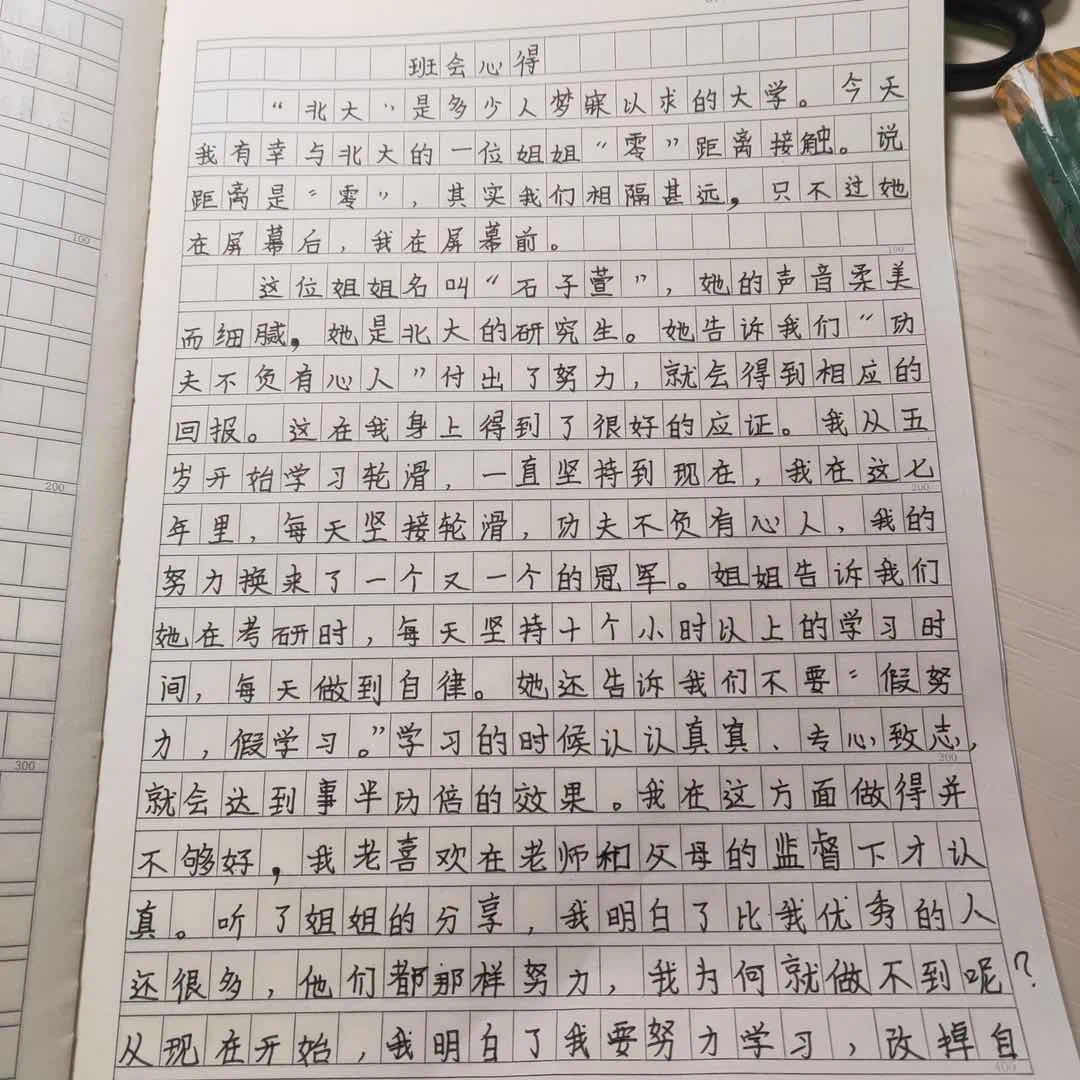 班会心得
“北大”是多少人梦寐以求的大学。今天
我有幸与北大的一位姐姐“零”距离接触。说
距离是“零”，其实我们相隔甚远，只不过她
在屏幕后，我在屏幕前。
100
100
这位姐姐名叫“石子萱”，她的声音柔美
而细腻，她是北大的研究生。她告诉我们“功
夫不负有心人”付出了努力，就会得到相应的
回报。这在我身上得到了很好的应证。我从五
岁开始学习轮滑，一直坚持到现在，我在这七
200
200
年里，每天坚接轮滑，功夫不负有心人，我的
努力换来了一个又一个的冠军。姐姐告诉我们
她在考研时，每天坚持十个小时以上的学习时
间，每天做到自律。她还告诉我们不要“假努
力，假学习。”学习的时候认认真真、专心致志，
300
就会达到事半功倍的效果。我在这方面做得并
不够好，我老喜欢在老师和父母的监督下才认
真。听了姐姐的分享，我明白了比我优秀的人
还很多，他们都那样努力，我为何就做不到呢？
从现在开始，我明白了我要努力学习，改掉自
400